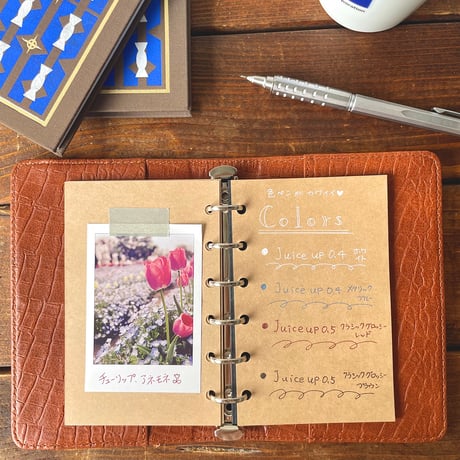 チューリップ、アネモネ
色ペンがカワイイ♥
Colors
Juice up 0.4 ホワイト
Juice up 0.4 メタリックブルー
Juice up 0.5 クラシックグロッシーレッド
Juice up 0.5 クラシックグロッシーブラウン